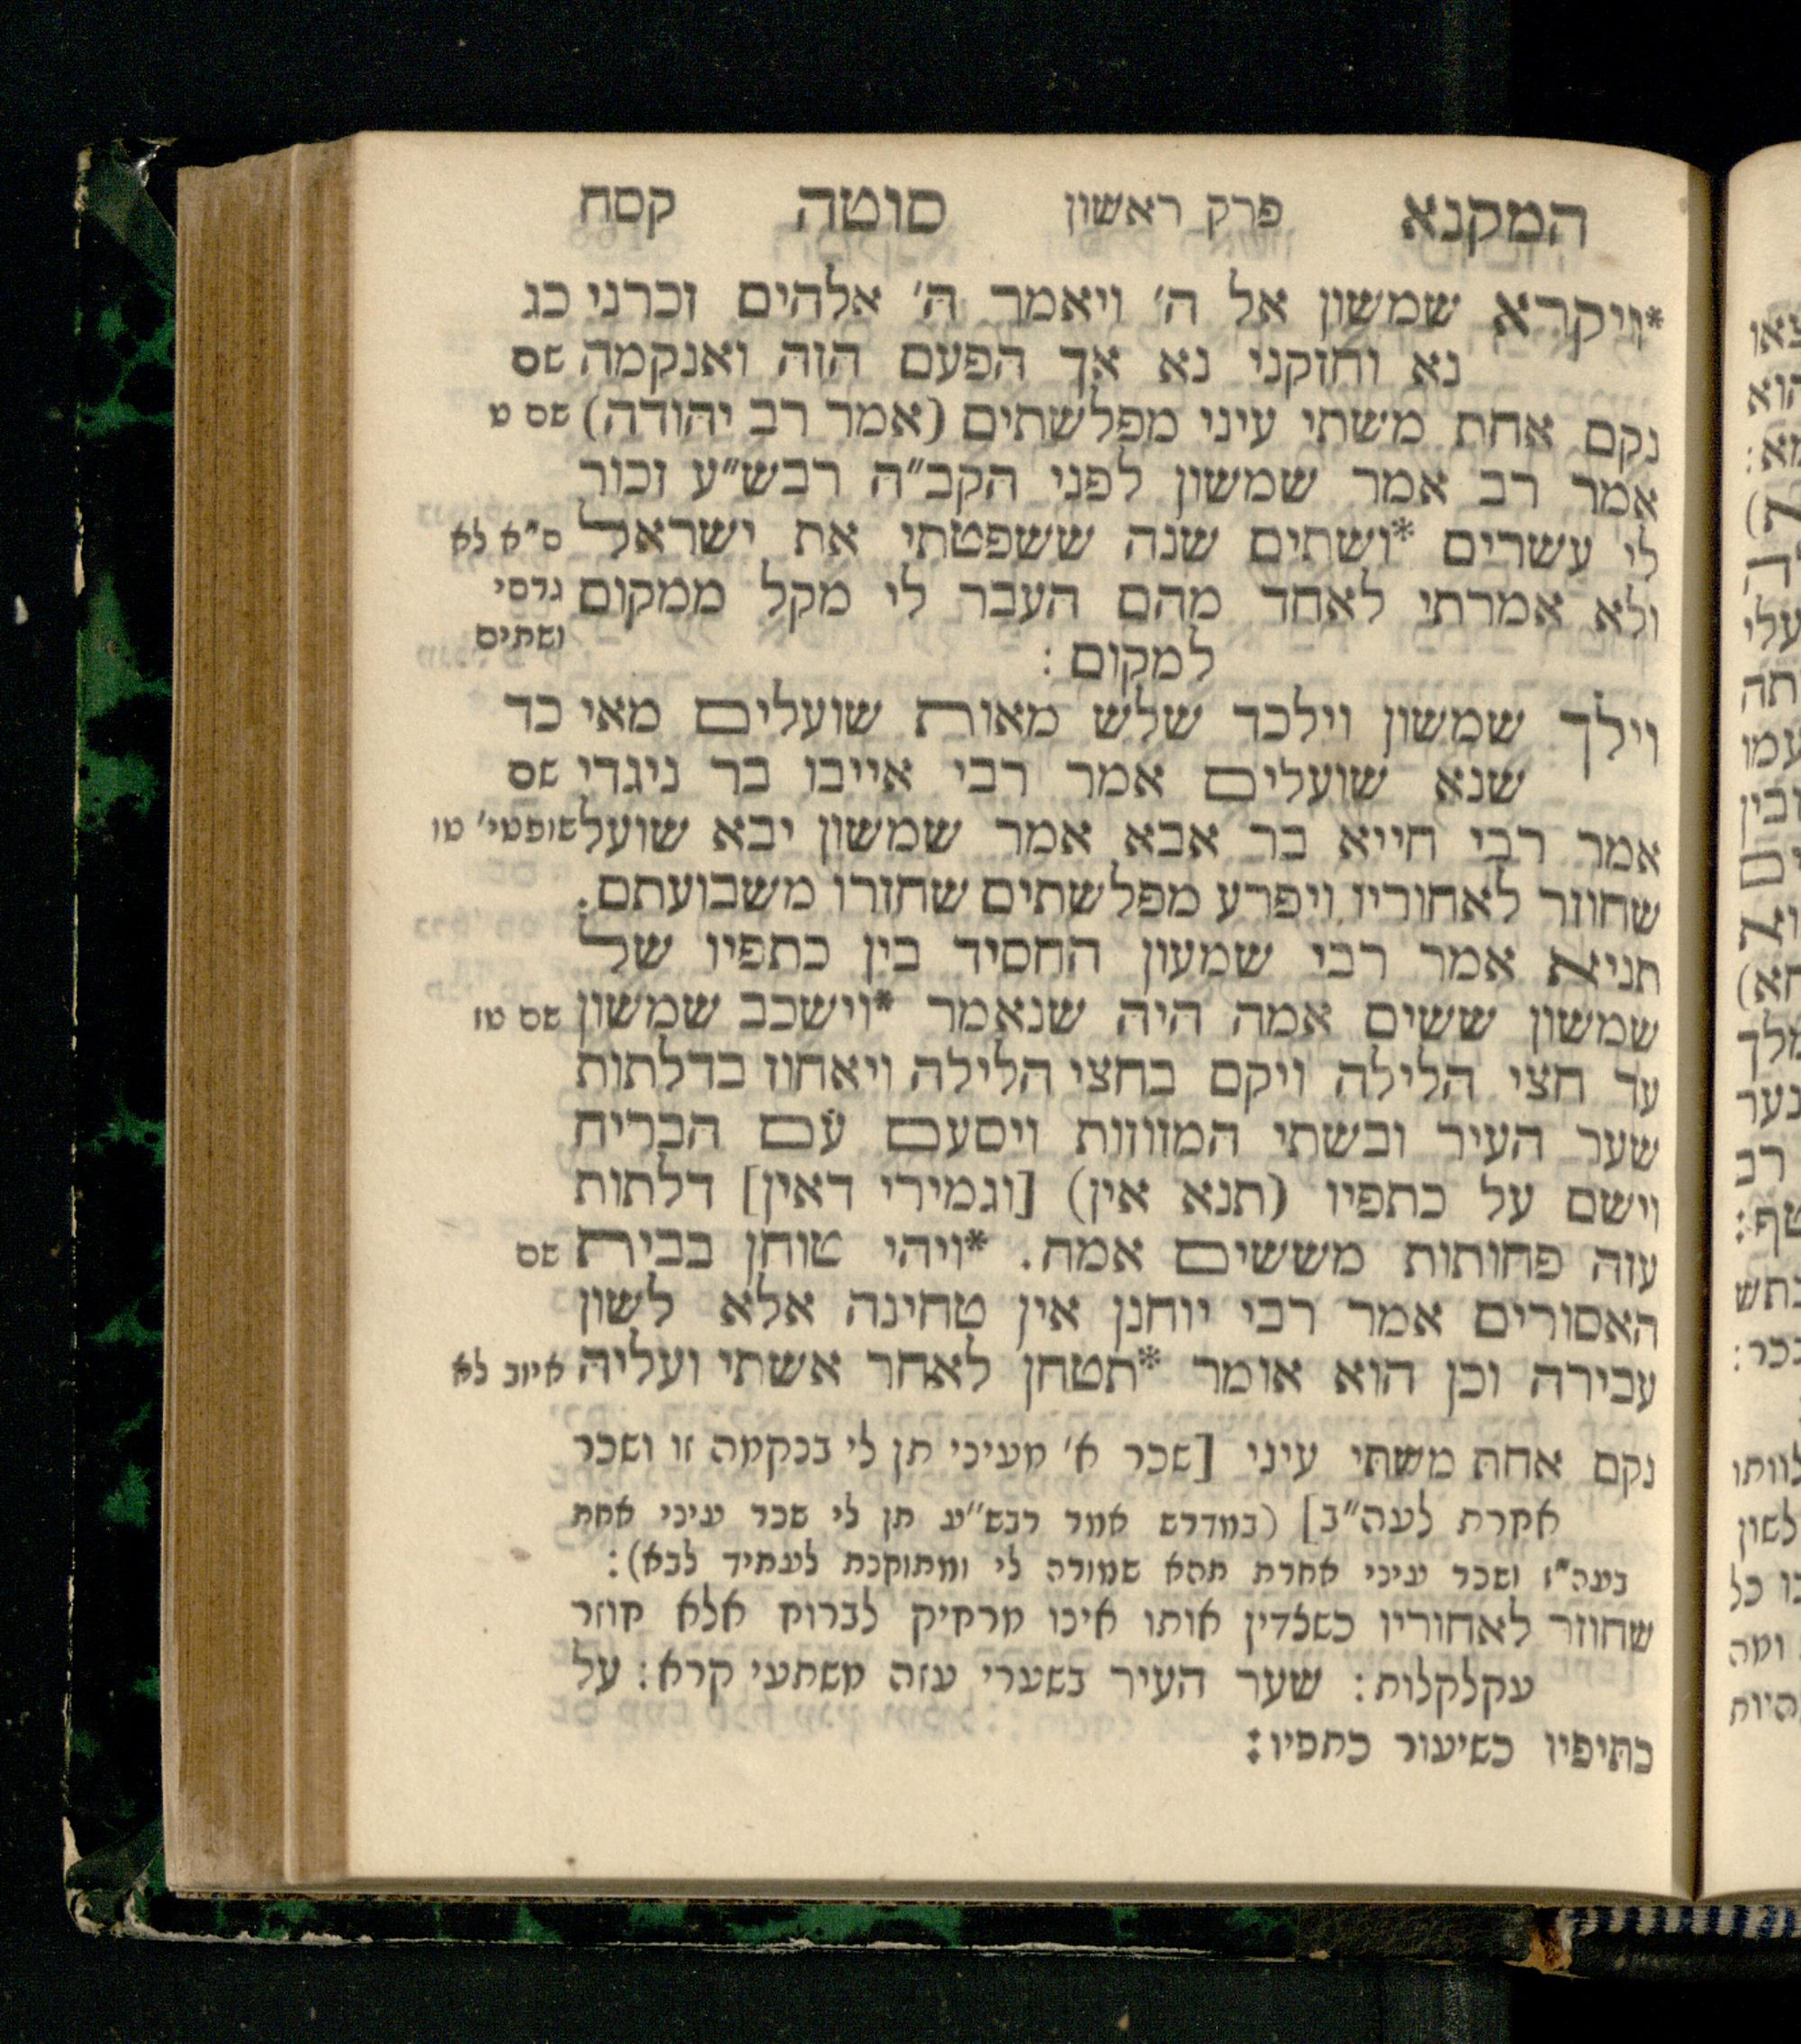 המקנא פרק ראשון סוטה קסח
*ויקרא שמשון אל ה' ויאמר ה' אלהים זכרני כג
נא וחזקני נא אך הפעם הזה ואנקמה שם
נקם אחת משתי עיני מפלשתים (אמר רב יהודה) שם ט
אמר רב אמר שמשון לפני הקב"ה רבש"ע זכור
לי עשרים *ושתים שנה ששפטתי את ישראל ס"א לא
ולא אמרתי לאחד מהם העבר לי מקל ממקום גרסי
למקום : ושתים
וילך שמשון וילכד שלש מאות שועלים מאי כד
שנא שועלים אמר רבי אייבו בר ניגדי שם
אמר רבי חייא בר אבא אמר שמשון יבא שועל שופטי' טו
שחוזר לאחוריו ויפרע מפלשתים שחזרו משבועתם.
תניא אמר רבי שמעון החסיד בין כתפיו של
שמשון ששים אמה היה שנאמר *וישכב שמשון שם טז
עד חצי הלילה ויקם בחצי הלילה ויאחוז בדלתות
שער העיר ובשתי המזוזות ויסעם עם הבריח
וישם על כתפיו (תנא אין) [וגמירי דאין] דלתות
עזה פחותות מששים אמה. *ויהי טוחן בבית שם
האסורים אמר רבי יוחנן אין טחינה אלא לשון
עבירה וכן הוא אומר *תטחן לאחר אשתי ועליה איוב לא
נקם אחת משתי עיני [שכר א' מעיני תן לי בנקמה זו ושכר
אחרת לעה"ב] (במדרש אמר רבש"ע תן לי שכר עיני אחת
בעה"ז ושכר עיני אחרת תהא שמורה לי ומתוקנת לעתיד לבא) :
שחוזר לאחוריו כשלדין אותו אינו מרחיק לברוח אלא חוזר
עקלקלות : שער העיר בשערי עזה משתעי קרא : על
כתיפיו כשיעור כתפיו :